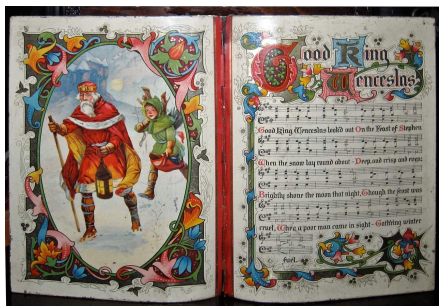 Good King
Wenceslas
Good King Wenceslas look'd out On the Feast of Stephen
When the snow lay round about - Deep and crisp and even
Brightly shone the moon that night, Though the frost was
cruel, When a poor man came in sight - Gath'ring winter
fuel.